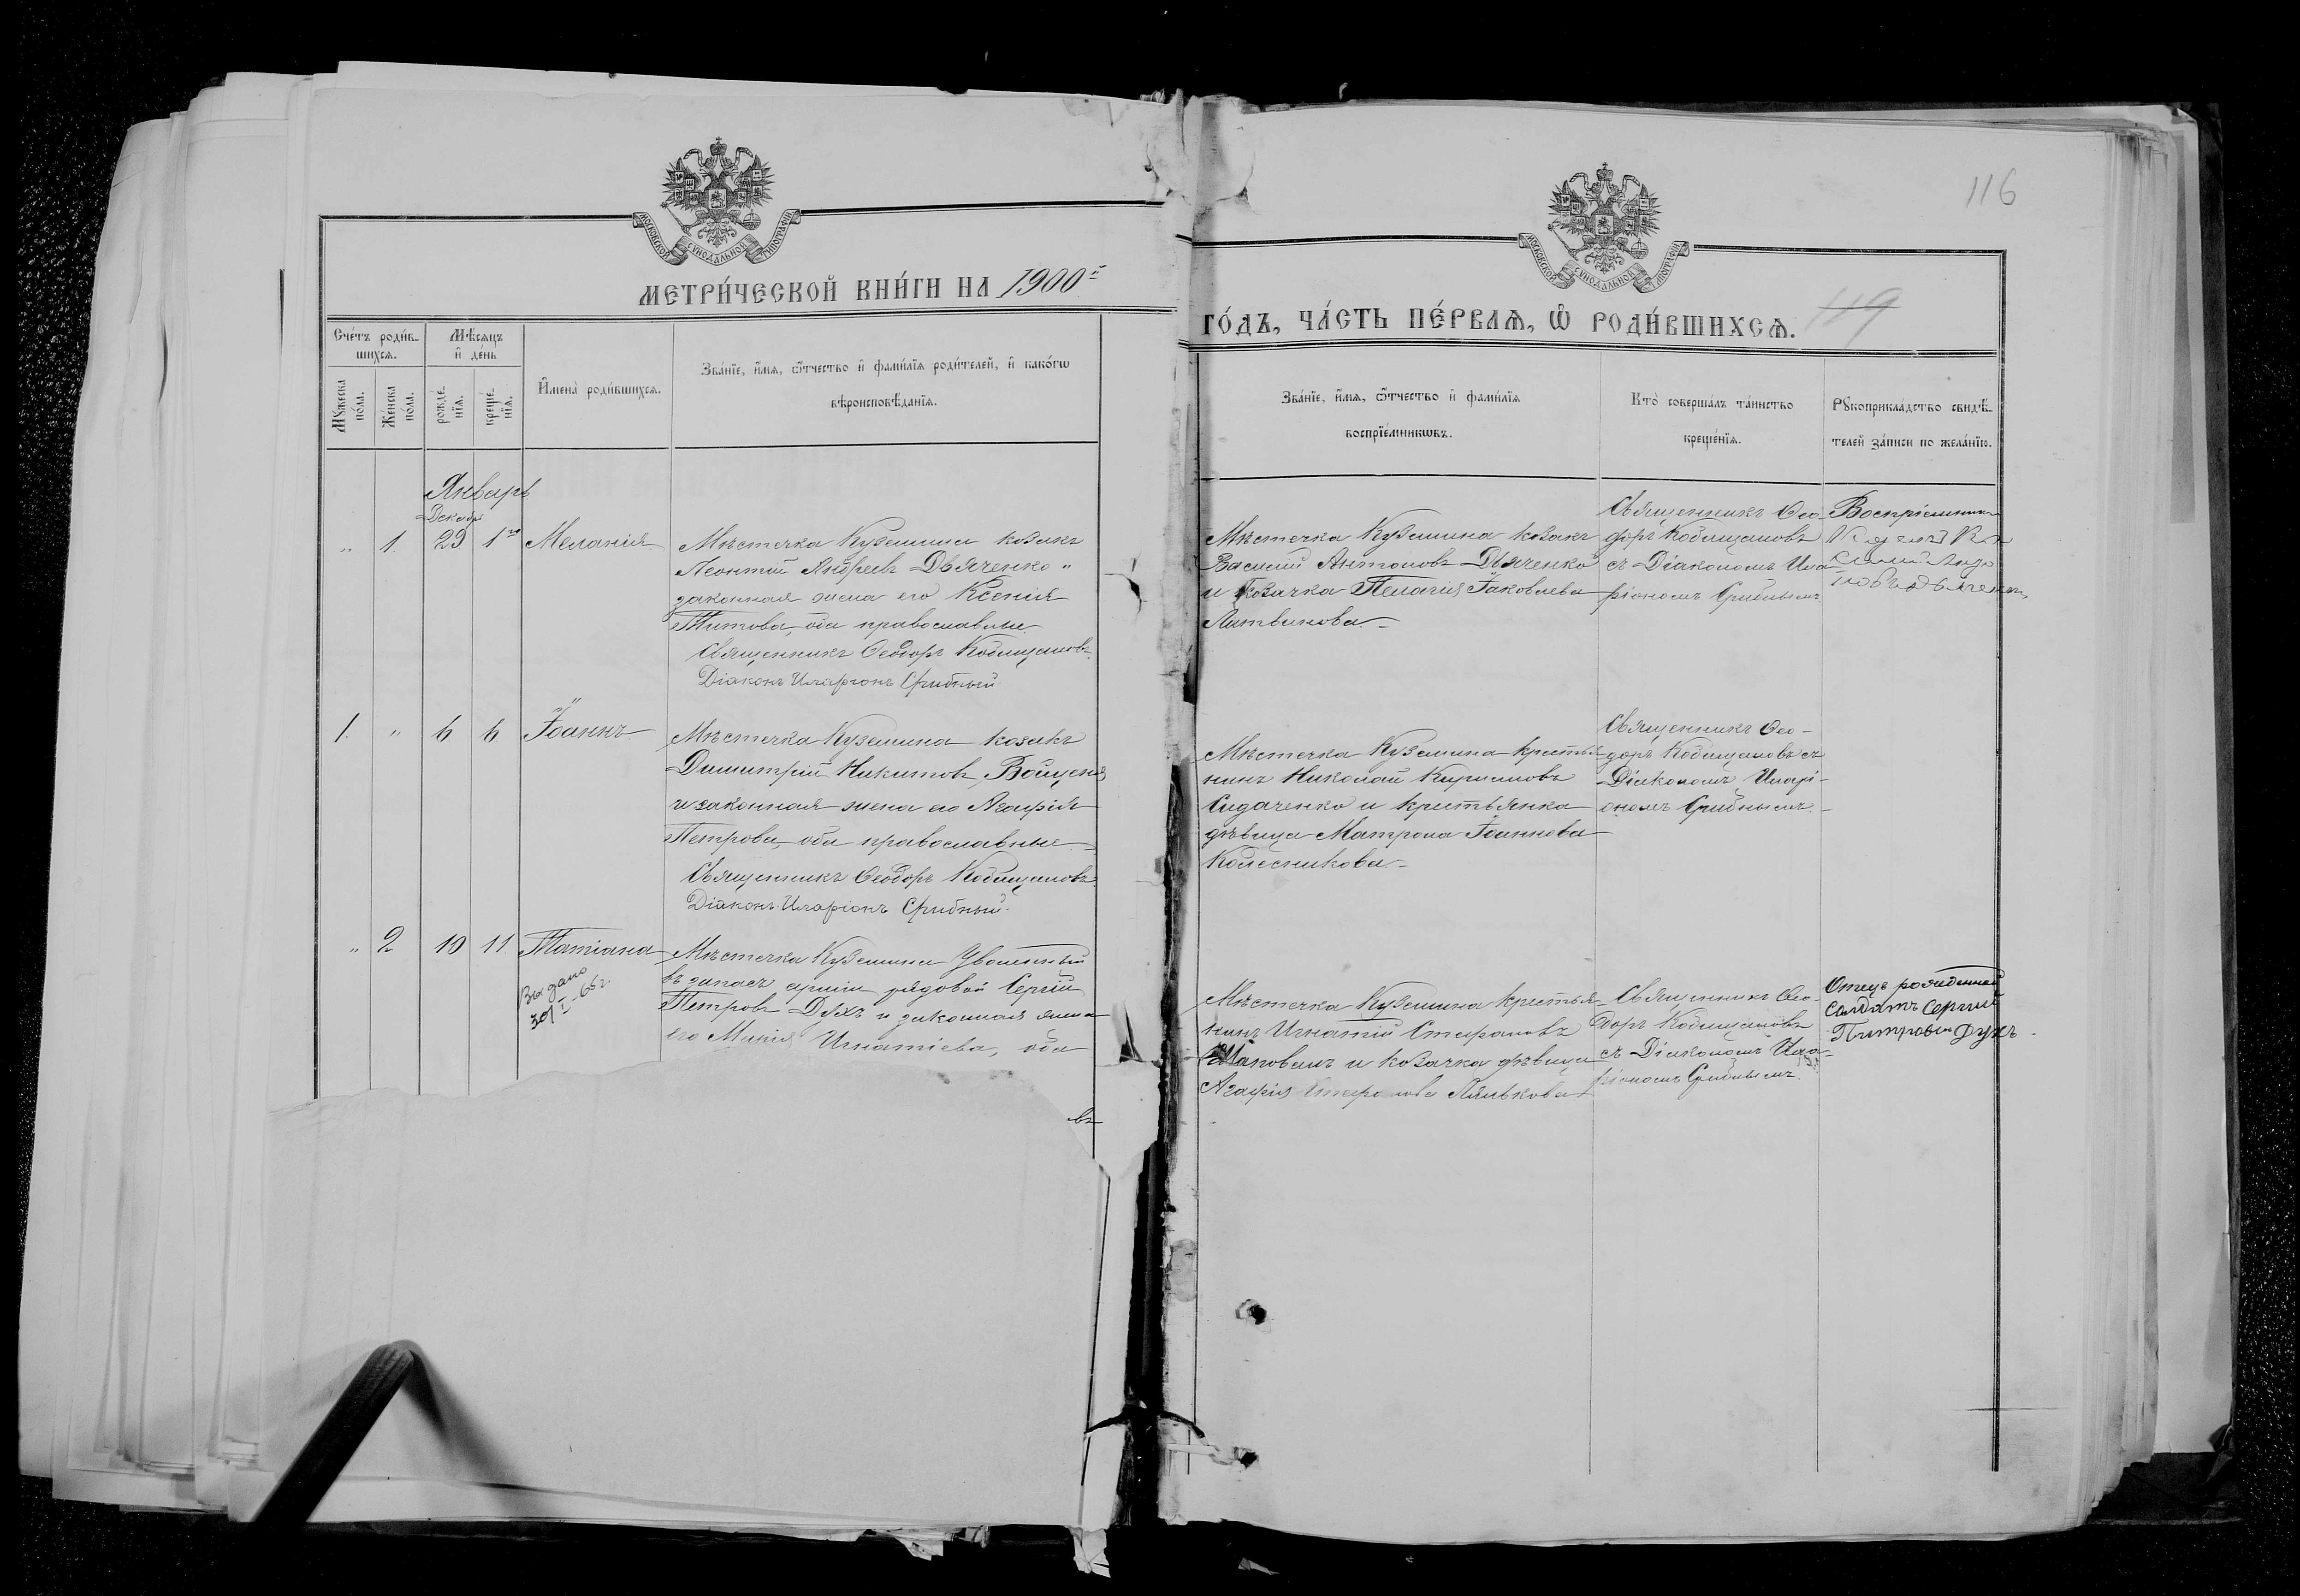 116
МОСКОВСКОЙ СУНОДАЛЬНОЙ ТИПОГРАФІИ
МОСКОВСКОЙ СУНОДАЛЬНОЙ ТИПОГРАФІИ
МЕТРИ́ЧЕСКОЙ КНИ́ГИ НА 1900й
ГО́ДЪ, ЧА́СТЬ ПЕ́РВАѦ, Ѡ҆ РОДИ́ВШИХСѦ.
119
Сче́тъ роди́в-
шихсѧ.
Мꙋ́жеска по́ла.
Же́нска по́ла.
Мѣ́сѧцъ
и҆ де́нь
рожде́-нїѧ.
креще́-нїѧ.
И҆мена̀ роди́вшихсѧ.
Зва́нїе, и҆́мѧ, ѻ҆́тчество и҆ фами́лїѧ роди́телей, и҆ како́гѡ
вѣроисповѣ́данїѧ.
Зва́нїе, и҆́мѧ, ѻ҆́тчество и҆ фами́лїѧ
воспрїе́мникѡвъ.
Кто̀ соверша́лъ та́инство
креще́нїѧ.
Рꙋкоприкла́дство свидѣ́-
телей за́писи по жела́нїю.
Январь
Декабрь
" 1. 29 1го Меланія
Мѣстечка Куземина козакъ
Леонтій Андреевъ Дьяченко "
законная жена его Ксенія
Титова, оба православные.
Священникъ Ѳеодоръ Кобищановъ
Діаконъ Иларіонъ Срибный
Мѣстечка Куземина козакъ
Василій Антоновъ Дьяченко
и козачка Пелагія Іаковлева
Литвинова.
Священникъ Ѳео-
доръ Кобищановъ
съ Діакономъ Ила-
ріономъ Срибнымъ
Воспріемникъ
1. " 6 6 Іоаннъ
Мѣстечка Куземина козакъ
Димитрій Никитовъ
и законная жена его Агафія
Петрова, оба православные.
Священникъ Ѳеодоръ Кобищановъ
Діаконъ Иларіонъ Срибный.
Мѣстечка Куземина крестья-
нинъ Николай
Сидаченко и крестьянка
дѣвица Матрона Іоаннова
Колесникова.
Священникъ Ѳео-
доръ Кобищановъ съ
Діакономъ Иларі-
ономъ Срибнымъ.
" 2 10 11 Татіана
Выдано
30/I-65г.
Мѣстечка Куземина уволенный
въ запасъ арміи рядовой Сергій
Петровъ Духъ и законная жена
его Игнатіева, оба
въ
Мѣстечка Куземина крестья-
нинъ Игнатій Стефановъ
Шаповалъ и козачка дѣвица
Агафія Стефанова
Священникъ Ѳео-
доръ Кобищановъ
съ Діакономъ Ила-
ріономъ Срибнымъ.
Отецъ рожденной
Салдатъ Сергий
Петровъ Духъ